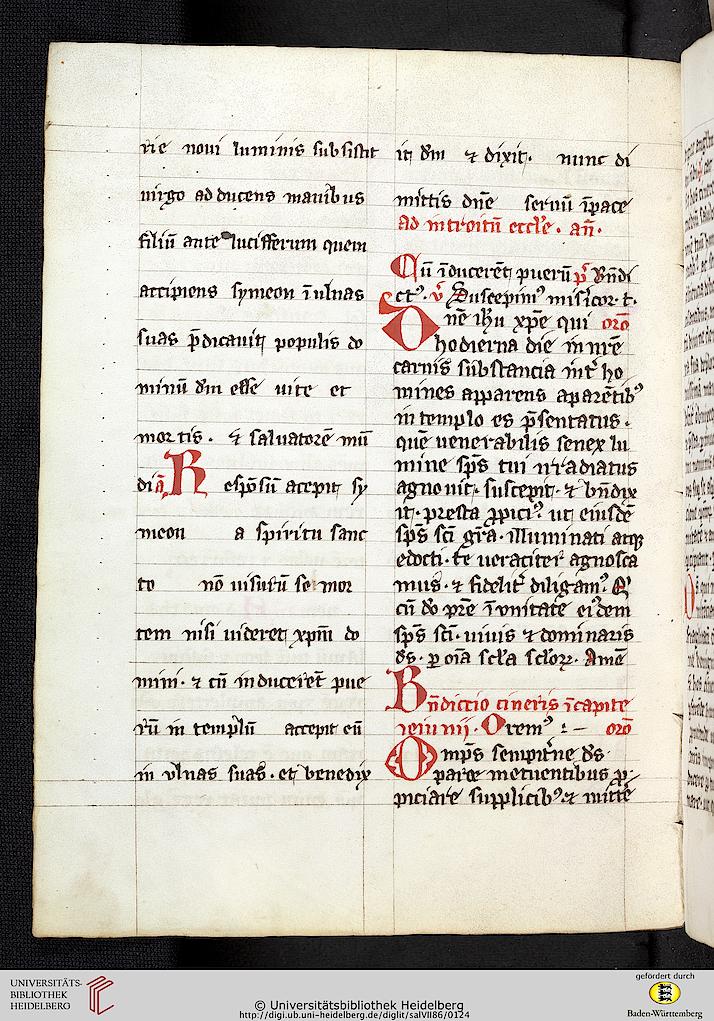 rie noui luminis subsistit
uirgo adducens manibus
filiū ante lucifferum quem
accipiens symeon ī ulnas
suas p̄dicauit populis do
minū dm̄ esse uite et
mortis. et saluatorē mū
di a. R espōsū accepit sy
meon a spiritu sanc
to nō uisurū se mor
tem nisi uideret xpm̄ do
mini. et cū inducerēt pue
rū in templū accepit eū
in vlnas suas. et benedix
it dm̄ et dixit. nunc di
mittis dn̄e seruū ī pace
ad introitū eccl'e. an̄.
Cū īducerēt puerū p̄ Bn̄di
ctꝰ. v̄ Suscepimꝰ misicor. t.
Dn̄e ihū xp̄e qui orō
hodierna die in nr̄e
carnis substancia int' ho
mines apparens aparētibꝰ
in templo es p̄sentatus.
quē uenerabilis senex lu
mine sp̄s tui irradiatus
agnouit. suscepit. et bn̄dix
it. presta ꝓpiciꝰ ut eiusdē
sp̄s sc̄i gr̄a. illuminati atqꝫ
edocti. te ueraciter agnosca
mus. et fidelit' diligamꝰ. Q'
cū do pr̄e ī vnitate eidem
sp̄s sc̄i. uiuis et dominaris
ds̄. p̱ oīa sc̄la sc̄lorꝝ. Amē
Bn̄dictio cineris ī capite
ieiunij. Oremꝰ :- orō
Omp̄s sempit'ne ds̄
parce metuentibus ꝓ
piciare supplicibꝰ. et mitte
UNIVERSITÄTS-
BIBLIOTHEK
HEIDELBERG
© Universitätsbibliothek Heidelberg
http://digi.ub.uni-heidelberg.de/diglit/salVII86/0124
gefördert durch
Baden-Württemberg